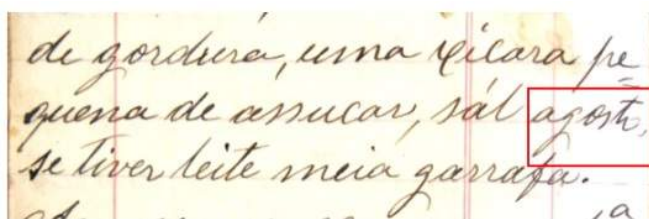 de gordura, uma xicara pe
quena de assucar, sál agosto,
se tiver leite meia garrafa.